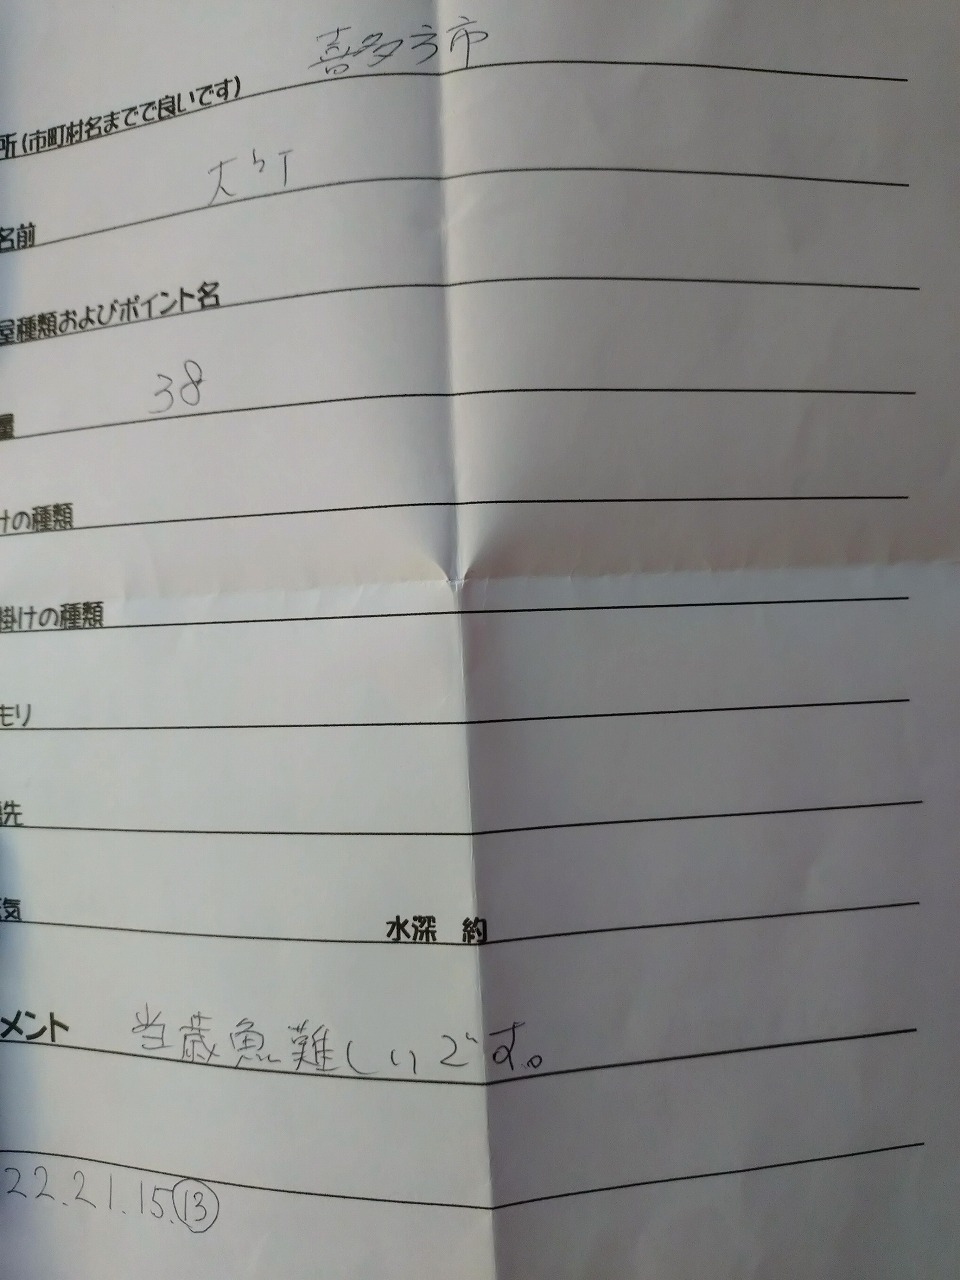 喜多方市
所(市町村名までで良いです)
名前
屋種類およびポイント名
量 38
けの種類
掛けの種類
モリ
先
気 水深 約
メント 当歳魚難しいです。
22.21.15.⑬